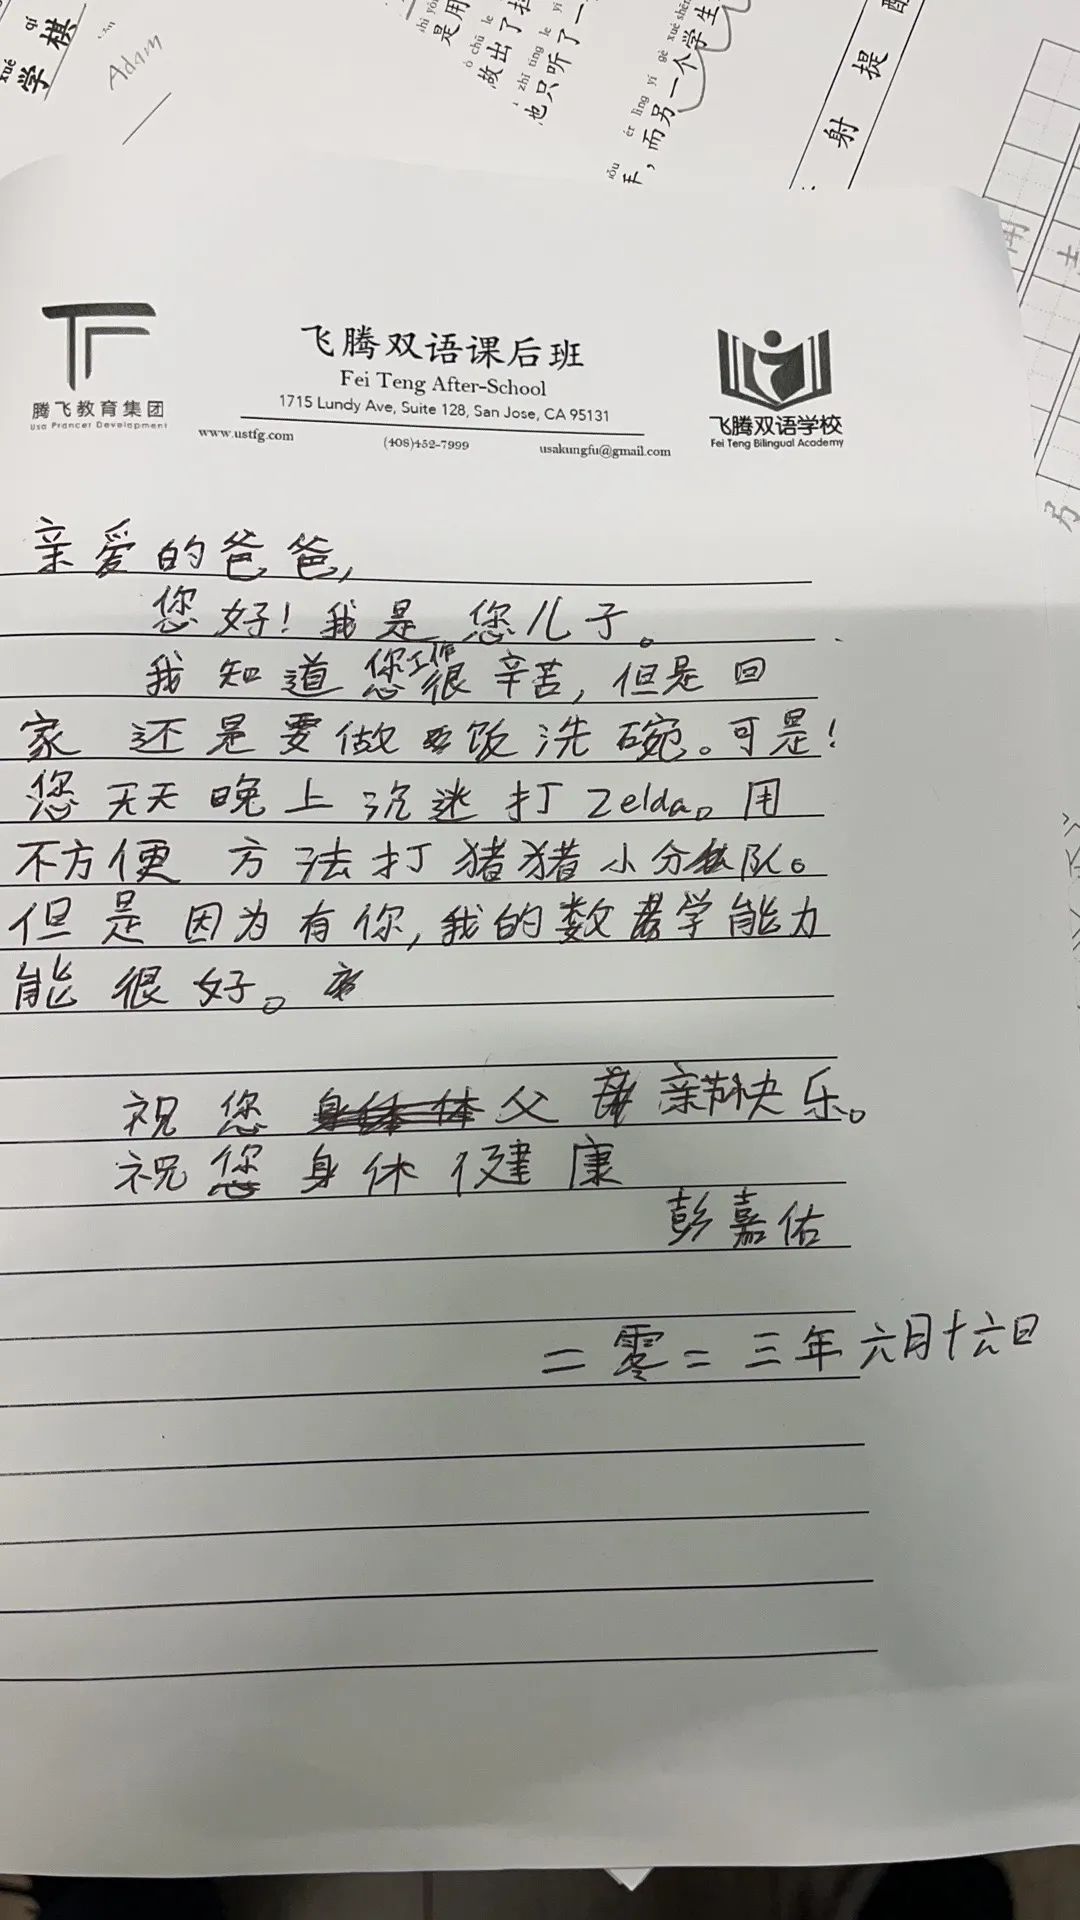 xué qí
学棋
Adam
是用
fàng chū le
放出了
yě zhǐ tīng le yí
也只听了一
ér lìng yí gè xué shēng
，而另一个学生
射提
腾飞教育集团
Usa Prancer Development
飞腾双语课后班
Fei Teng After-School
1715 Lundy Ave, Suite 128, San Jose, CA 95131
www.ustfg.com (408)452-7999 usakungfu@gmail.com
飞腾双语学校
Fei Teng Bilingual Academy
亲爱的爸爸,
您好！我是您儿子。
我知道您工作很辛苦，但是回
家还是要做饭洗碗。可是！
您天天晚上沉迷打Zelda。用
不方便方法打猪猪小分队。
但是因为有你，我的数学能力
能很好。
祝您父亲节快乐。
祝您身休健康
彭嘉佑
二零二三年六月十六日